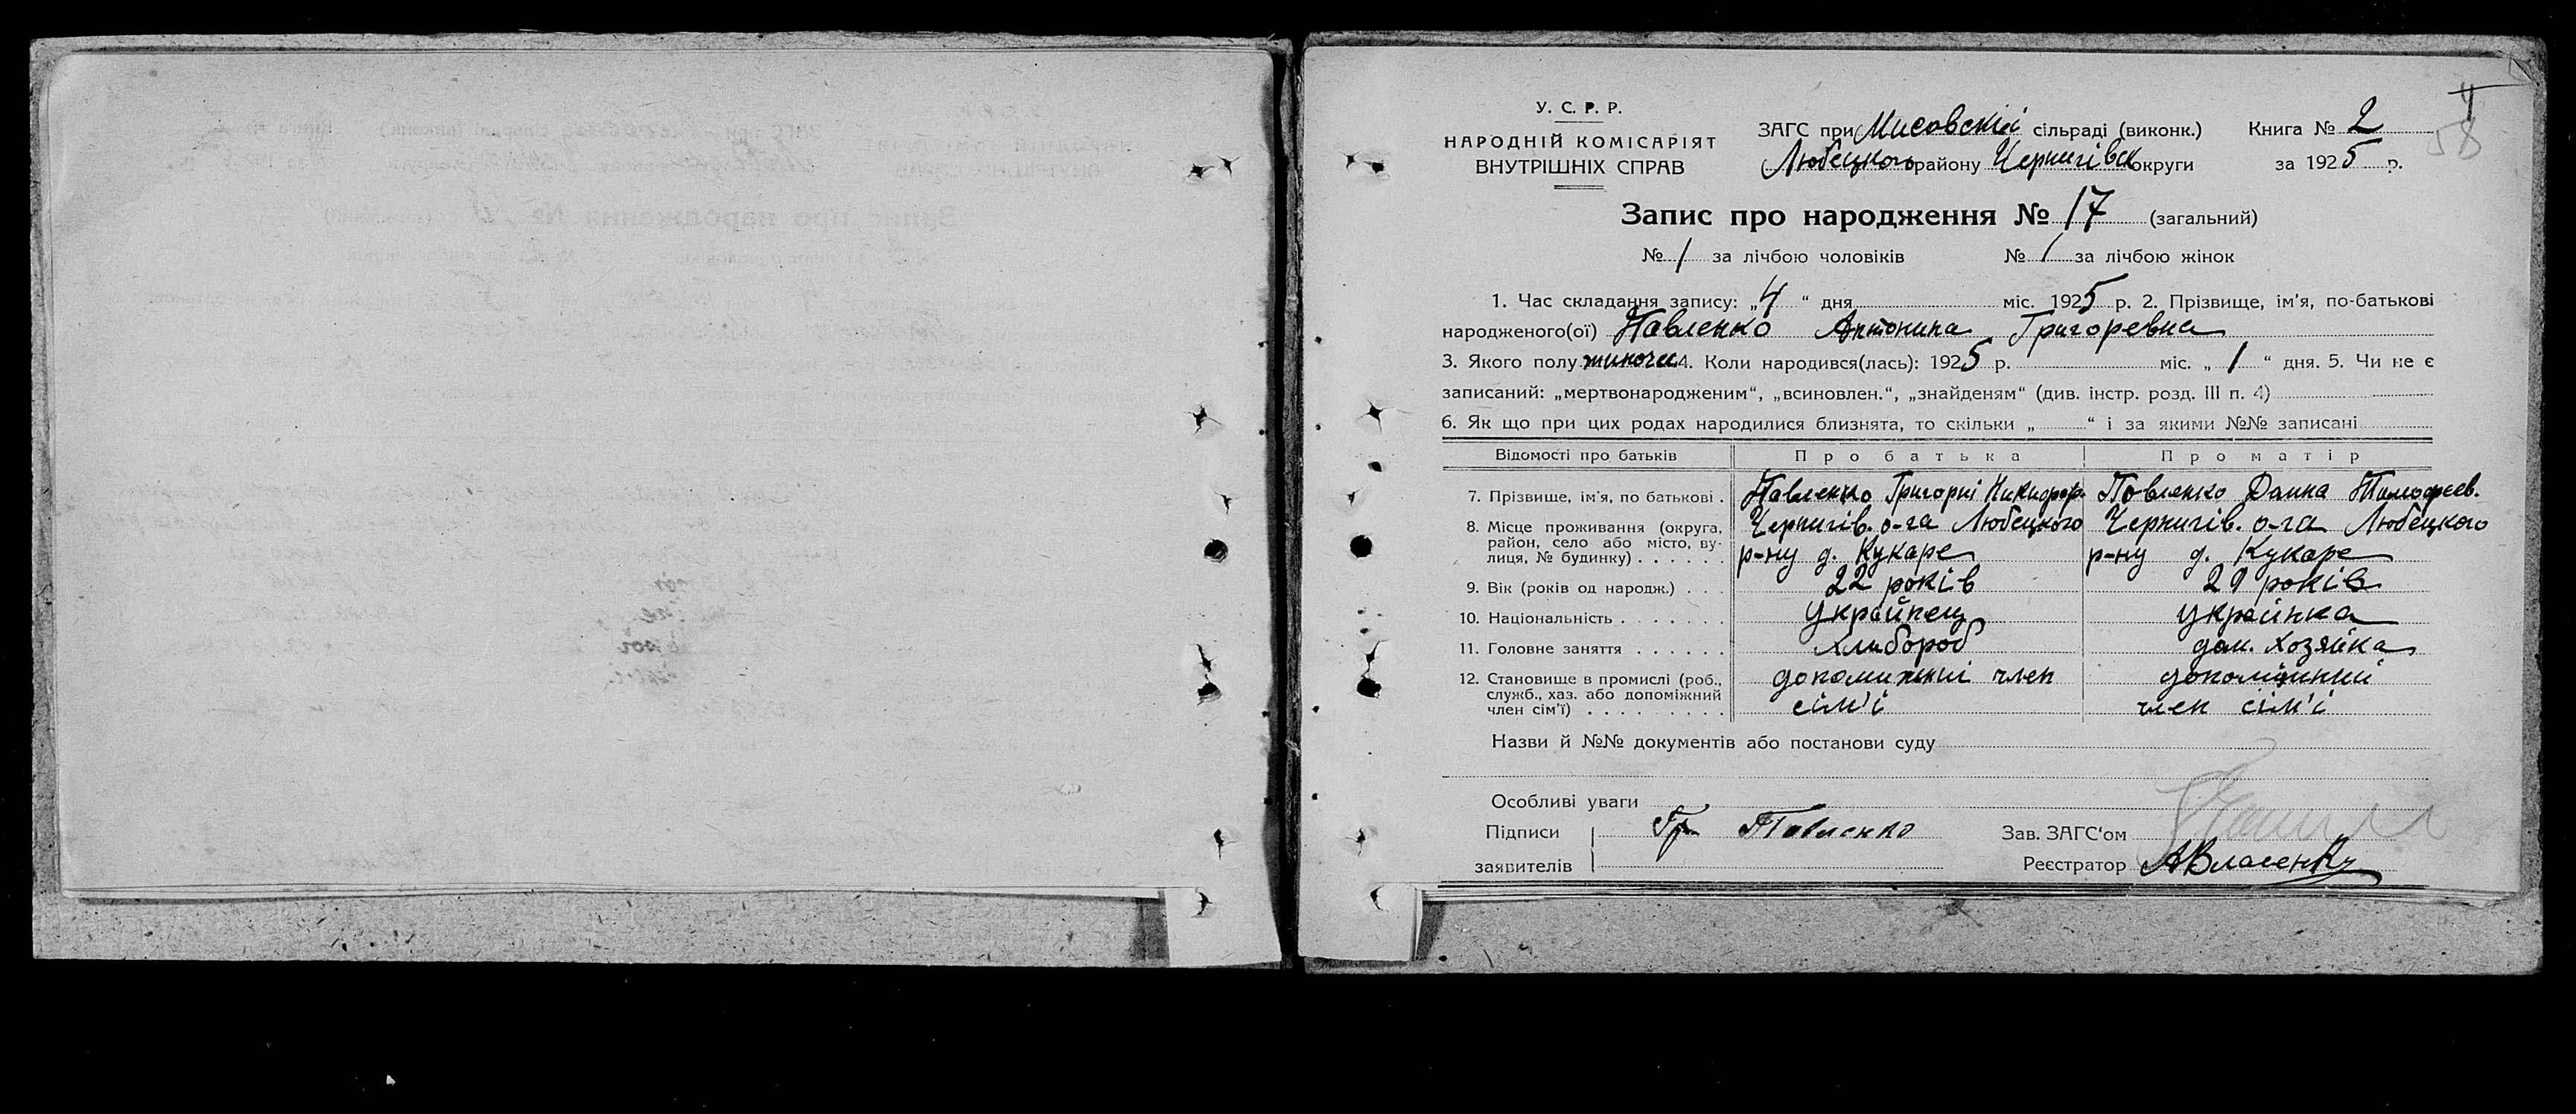 У. С. Р. Р.
НАРОДНІЙ КОМІСАРІЯТ
ВНУТРІШНІХ СПРАВ
ЗАГС при Мисовскій сільраді (виконк.) Книга № 2
Любецкого району Чернигівск округи за 1925 р.
58
Запис про народження № 17 (загальний)
№ 1 за лічбою чоловіків № 1 за лічбою жінок
1. Час складання запису: „4“ дня міс. 1925 р. 2. Прізвище, ім'я, по-батькові
народженого(ої) Павленко Антонина Григоревна
3. Якого полу жиночи 4. Коли народився(лась): 1925 р. міс. „1“ дня. 5. Чи не є
записаний: „мертвонародженим“, „всиновлен.“, „знайденям“ (див. інстр. розд. III п. 4)
6. Як що при цих родах народилися близнята, то скільки „ “ і за якими №№ записані
Відомості про батьків Про батька Про матір
7. Прізвище, ім'я, по батькові . Павленко Григорні Никифор. Павленко Домна Тимофеев.
8. Місце проживання (округа, Чернигів. о-га Любецкого Чернигів. о-га Любецкого
район, село або місто, ву- р-ну д. Кукаре р-ну д. Кукаре
лиця, № будинку) . . . . . .
9. Вік (років од народж.) . . . 22 років 21 років
10. Національність . . . . . . . Украйнец украинка
11. Головне заняття . . . . . . Хлибороб дом. хозяйка
12. Становище в промислі (роб., допомижнии член допомижнии
служб., хаз. або допоміжний
член сім'ї) . . . . . . . . . сім'і член сім'і
Назви й №№ документів або постанови суду
Особливі уваги
Підписи Гр Павленко Зав. ЗАГС'ом
заявителів Реєстратор АВласенко